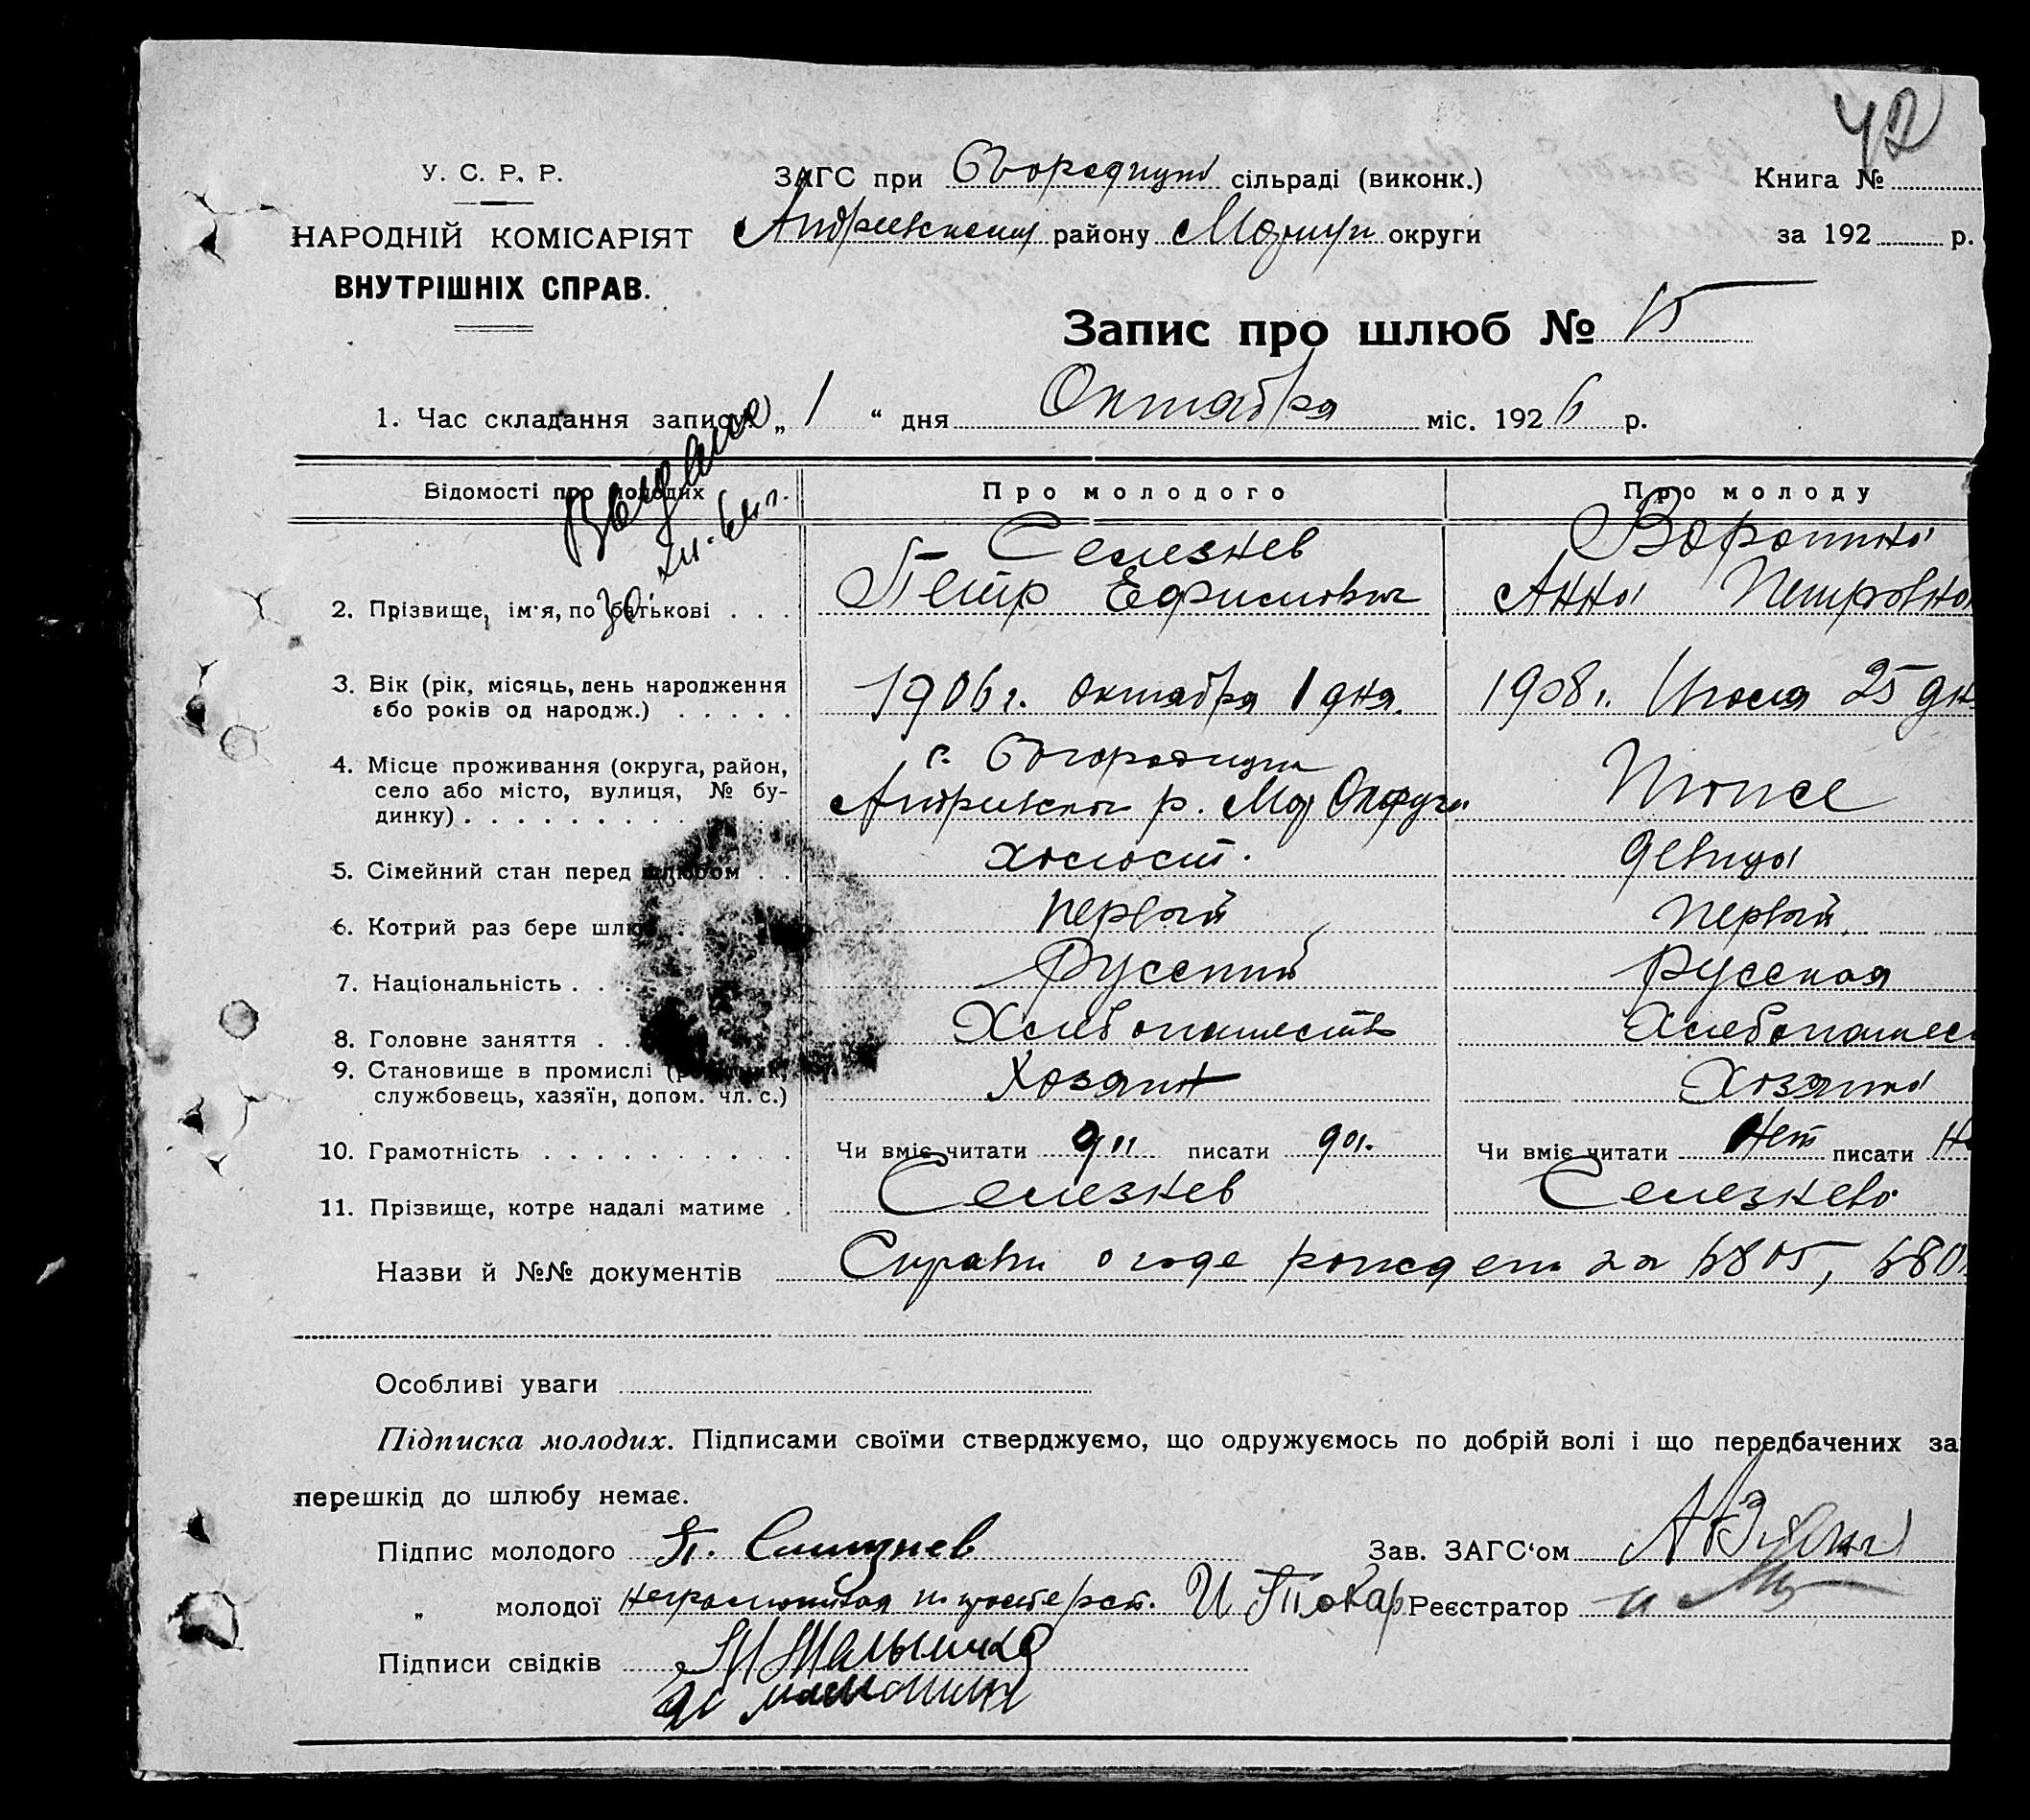 42
У. С. Р. Р.
НАРОДНІЙ КОМІСАРІЯТ
ВНУТРІШНІХ СПРАВ.
ЗАГС при сільраді (виконк.)
району округи
Книга №
за 192 р.
Запис про шлюб № 15
1. Час складання запису „ 1 “ дня Октября міс. 1926 р.
Відомості про молодих Про молодого Про молоду
Селезнев
Петр Ефимович Анна Петровна
2. Прізвище, ім'я, по батькові . . .
3. Вік (рік, місяць, день народження
або років од народж.) . . . . . 1906 г. Октября 1 дня. 1908 г. Июля 25 дн
4. Місце проживання (округа, район,
село або місто, вулиця, № бу-
динку) . . . . . . . . р. Тоже
5. Сімейний стан перед шлюбом . . холост. девица
6. Котрий раз бере шлюб . первый первый
7. Національність . . . Русский Русская
8. Головне заняття . . Хлебопашеств Хлебопашес
9. Становище в промислі
службовець, хазяїн, допом. чл. с.) Хозяин
10. Грамотність . . . . . . . . . . Чи вміє читати да писати да. Чи вміє читати Нет писати Не
11. Прізвище, котре надалі матиме . Селезнев Селезнева
Назви й №№ документів о годе рожден за
Особливі уваги
Підписка молодих. Підписами своїми стверджуємо, що одружуємось по добрій волі і що передбачених за
перешкід до шлюбу немає.
Підпис молодого П. Зав. ЗАГС‘ом
„ молодої неграмотная И Токар Реєстратор
Підписи свідків